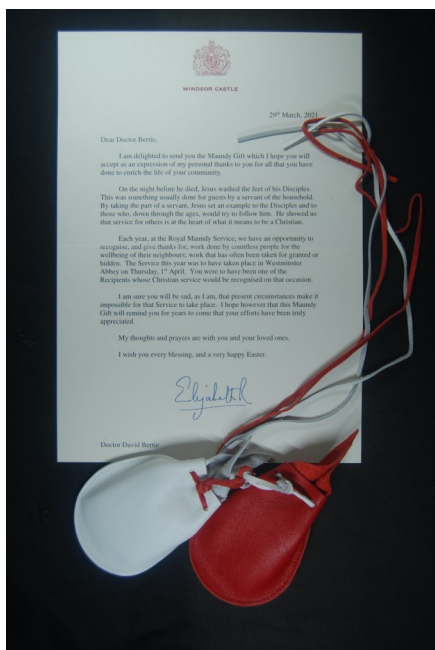 WINDSOR CASTLE
29th March, 2021
Dear Doctor Bertie,
I am delighted to send you the Maundy Gift which I hope you will
accept as an expression of my personal thanks to you for all that you have
done to enrich the life of your community.
On the night before he died, Jesus washed the feet of his Disciples.
This was something usually done for guests by a servant of the household.
By taking the part of a servant, Jesus set an example to the Disciples and to
those who, down through the ages, would try to follow him. He showed us
that service for others is at the heart of what it means to be a Christian.
Each year, at the Royal Maundy Service, we have an opportunity to
recognise, and give thanks for, work done by countless people for the
wellbeing of their neighbours; work that has often been taken for granted or
hidden. The Service this year was to have taken place in Westminster
Abbey on Thursday, 1st April. You were to have been one of the
Recipients whose Christian service would be recognised on that occasion.
I am sure you will be sad, as I am, that present circumstances make it
impossible for that Service to take place. I hope however that this Maundy
Gift will remind you for years to come that your efforts have been truly
appreciated.
My thoughts and prayers are with you and your loved ones.
I wish you every blessing, and a very happy Easter.
Elizabeth R
Doctor David Bertie